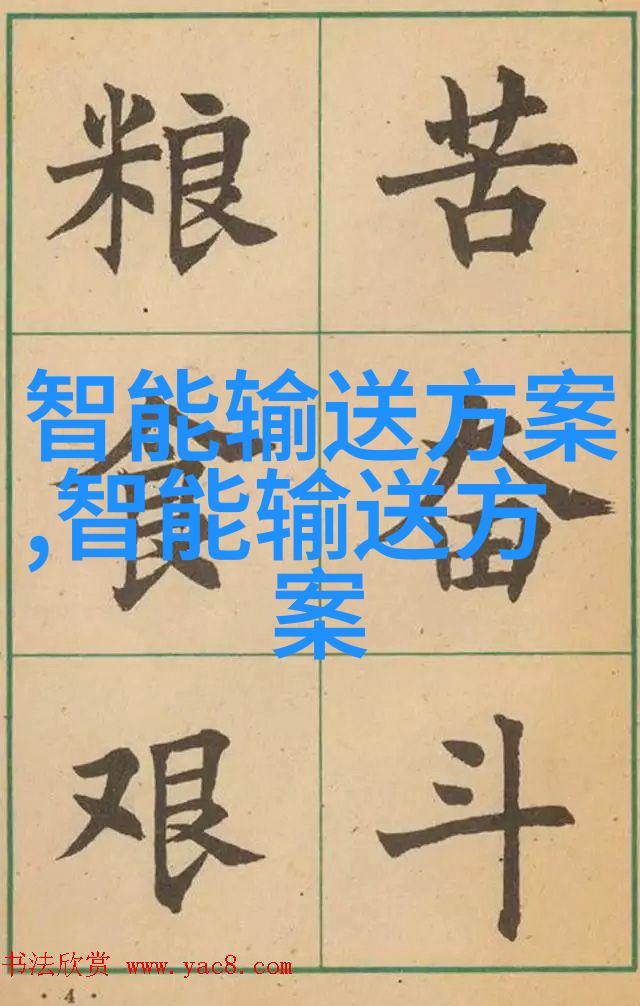 粮食艰
苦奋斗
智能输送方案
,智能输送方
案
书法欣赏 www.yac8.com
· 4 ·